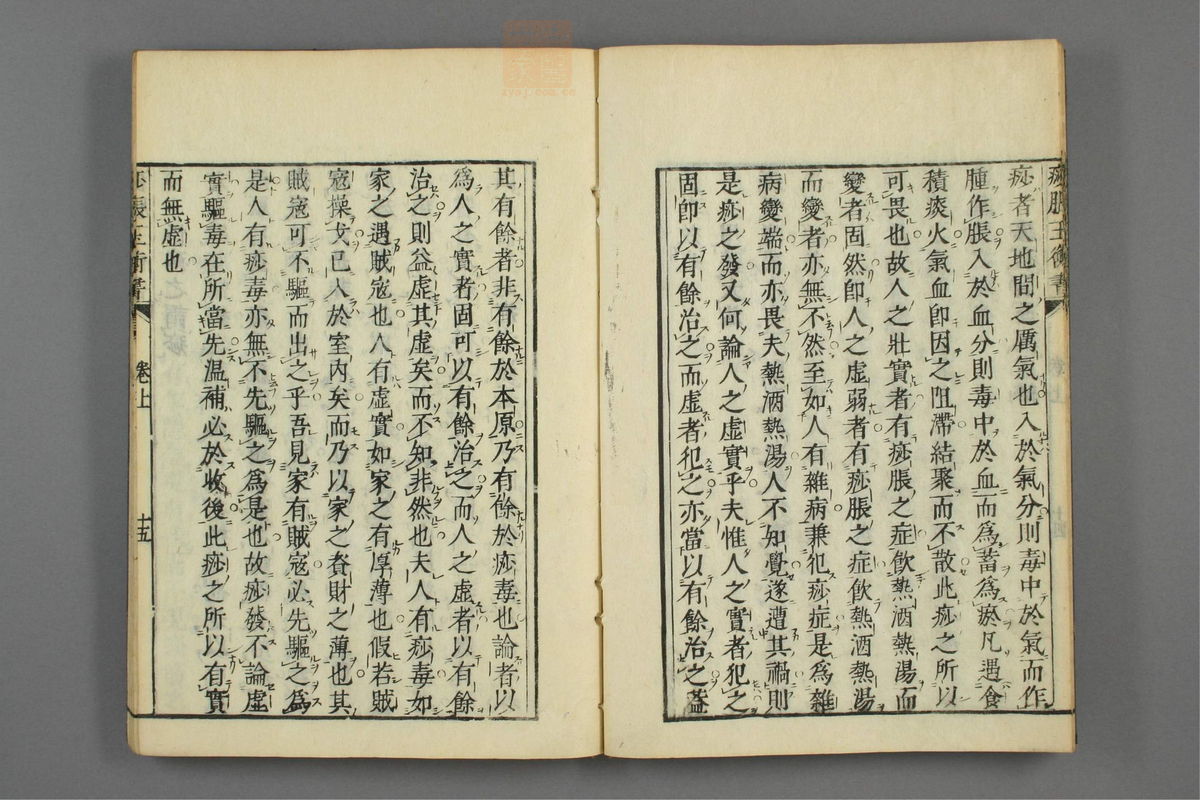 痧脹玉衡書
痧者天地間之厲氣也入於氣分則毒中於氣而作
腫作脹入於血分則毒中於血而為蓄為瘀凡遇食
積痰火氣血即因之阻滯結聚而不散此痧之所以
可畏也故人之壯實者有痧脹之症飲熱酒熱湯而
變者固然即人之虛弱者有痧脹之症飲熱酒熱湯
而變者亦無不然至如人有雜病兼犯痧症是為雜
病變端而亦畏夫熱酒熱湯人不知覺遂遭其禍則
是痧之發又何論人之虛實乎夫惟人之實者犯之
固即以有餘治之而虛者犯之亦當以有餘治之蓋
其有餘者非有餘於本原乃有餘於痧毒也論者以
為人之實者固可以有餘治之而人之虛者以有餘
治之則益虛其虛矣而不知非然也夫人有痧毒如
家之遇賊寇也人有虛實如家之有厚薄也假若賊
寇操戈已入於室內矣而乃以家之眷財之薄也其
賊寇可不驅而出之乎吾見家有賊寇必先驅之為
是人有痧毒亦無不先驅之為是也故痧發不論虛
實驅毒在所當先溫補必於收後此痧之所以有實
而無虛也
痧脹玉衡書
卷上
十五
zysj.com.cn